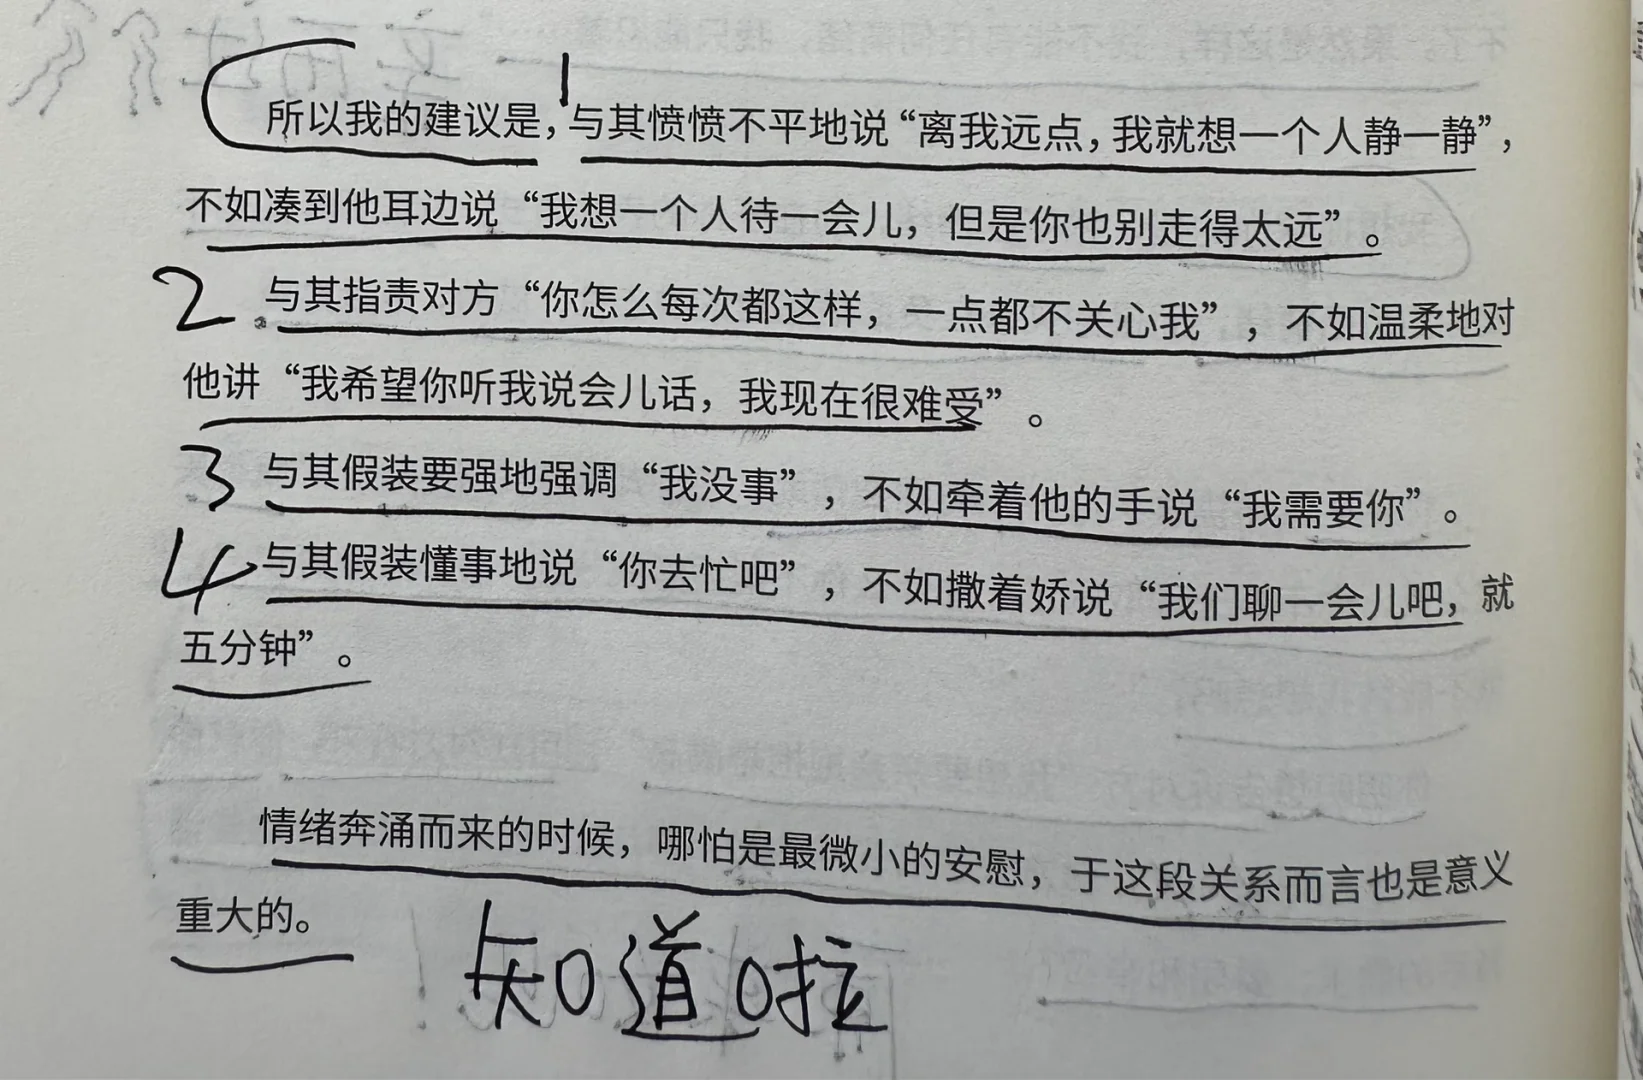 所以我的建议是，与其愤愤不平地说“离我远点，我就想一个人静一静”，
不如凑到他耳边说“我想一个人待一会儿，但是你也别走得太远”。
2 与其指责对方“你怎么每次都这样，一点都不关心我”，不如温柔地对
他讲“我希望你听我说会儿话，我现在很难受”。
3 与其假装要强地强调“我没事”，不如牵着他的手说“我需要你”。
4 与其假装懂事地说“你去忙吧”，不如撒着娇说“我们聊一会儿吧，就
五分钟”。
情绪奔涌而来的时候，哪怕是最微小的安慰，于这段关系而言也是意义
重大的。
知道啦